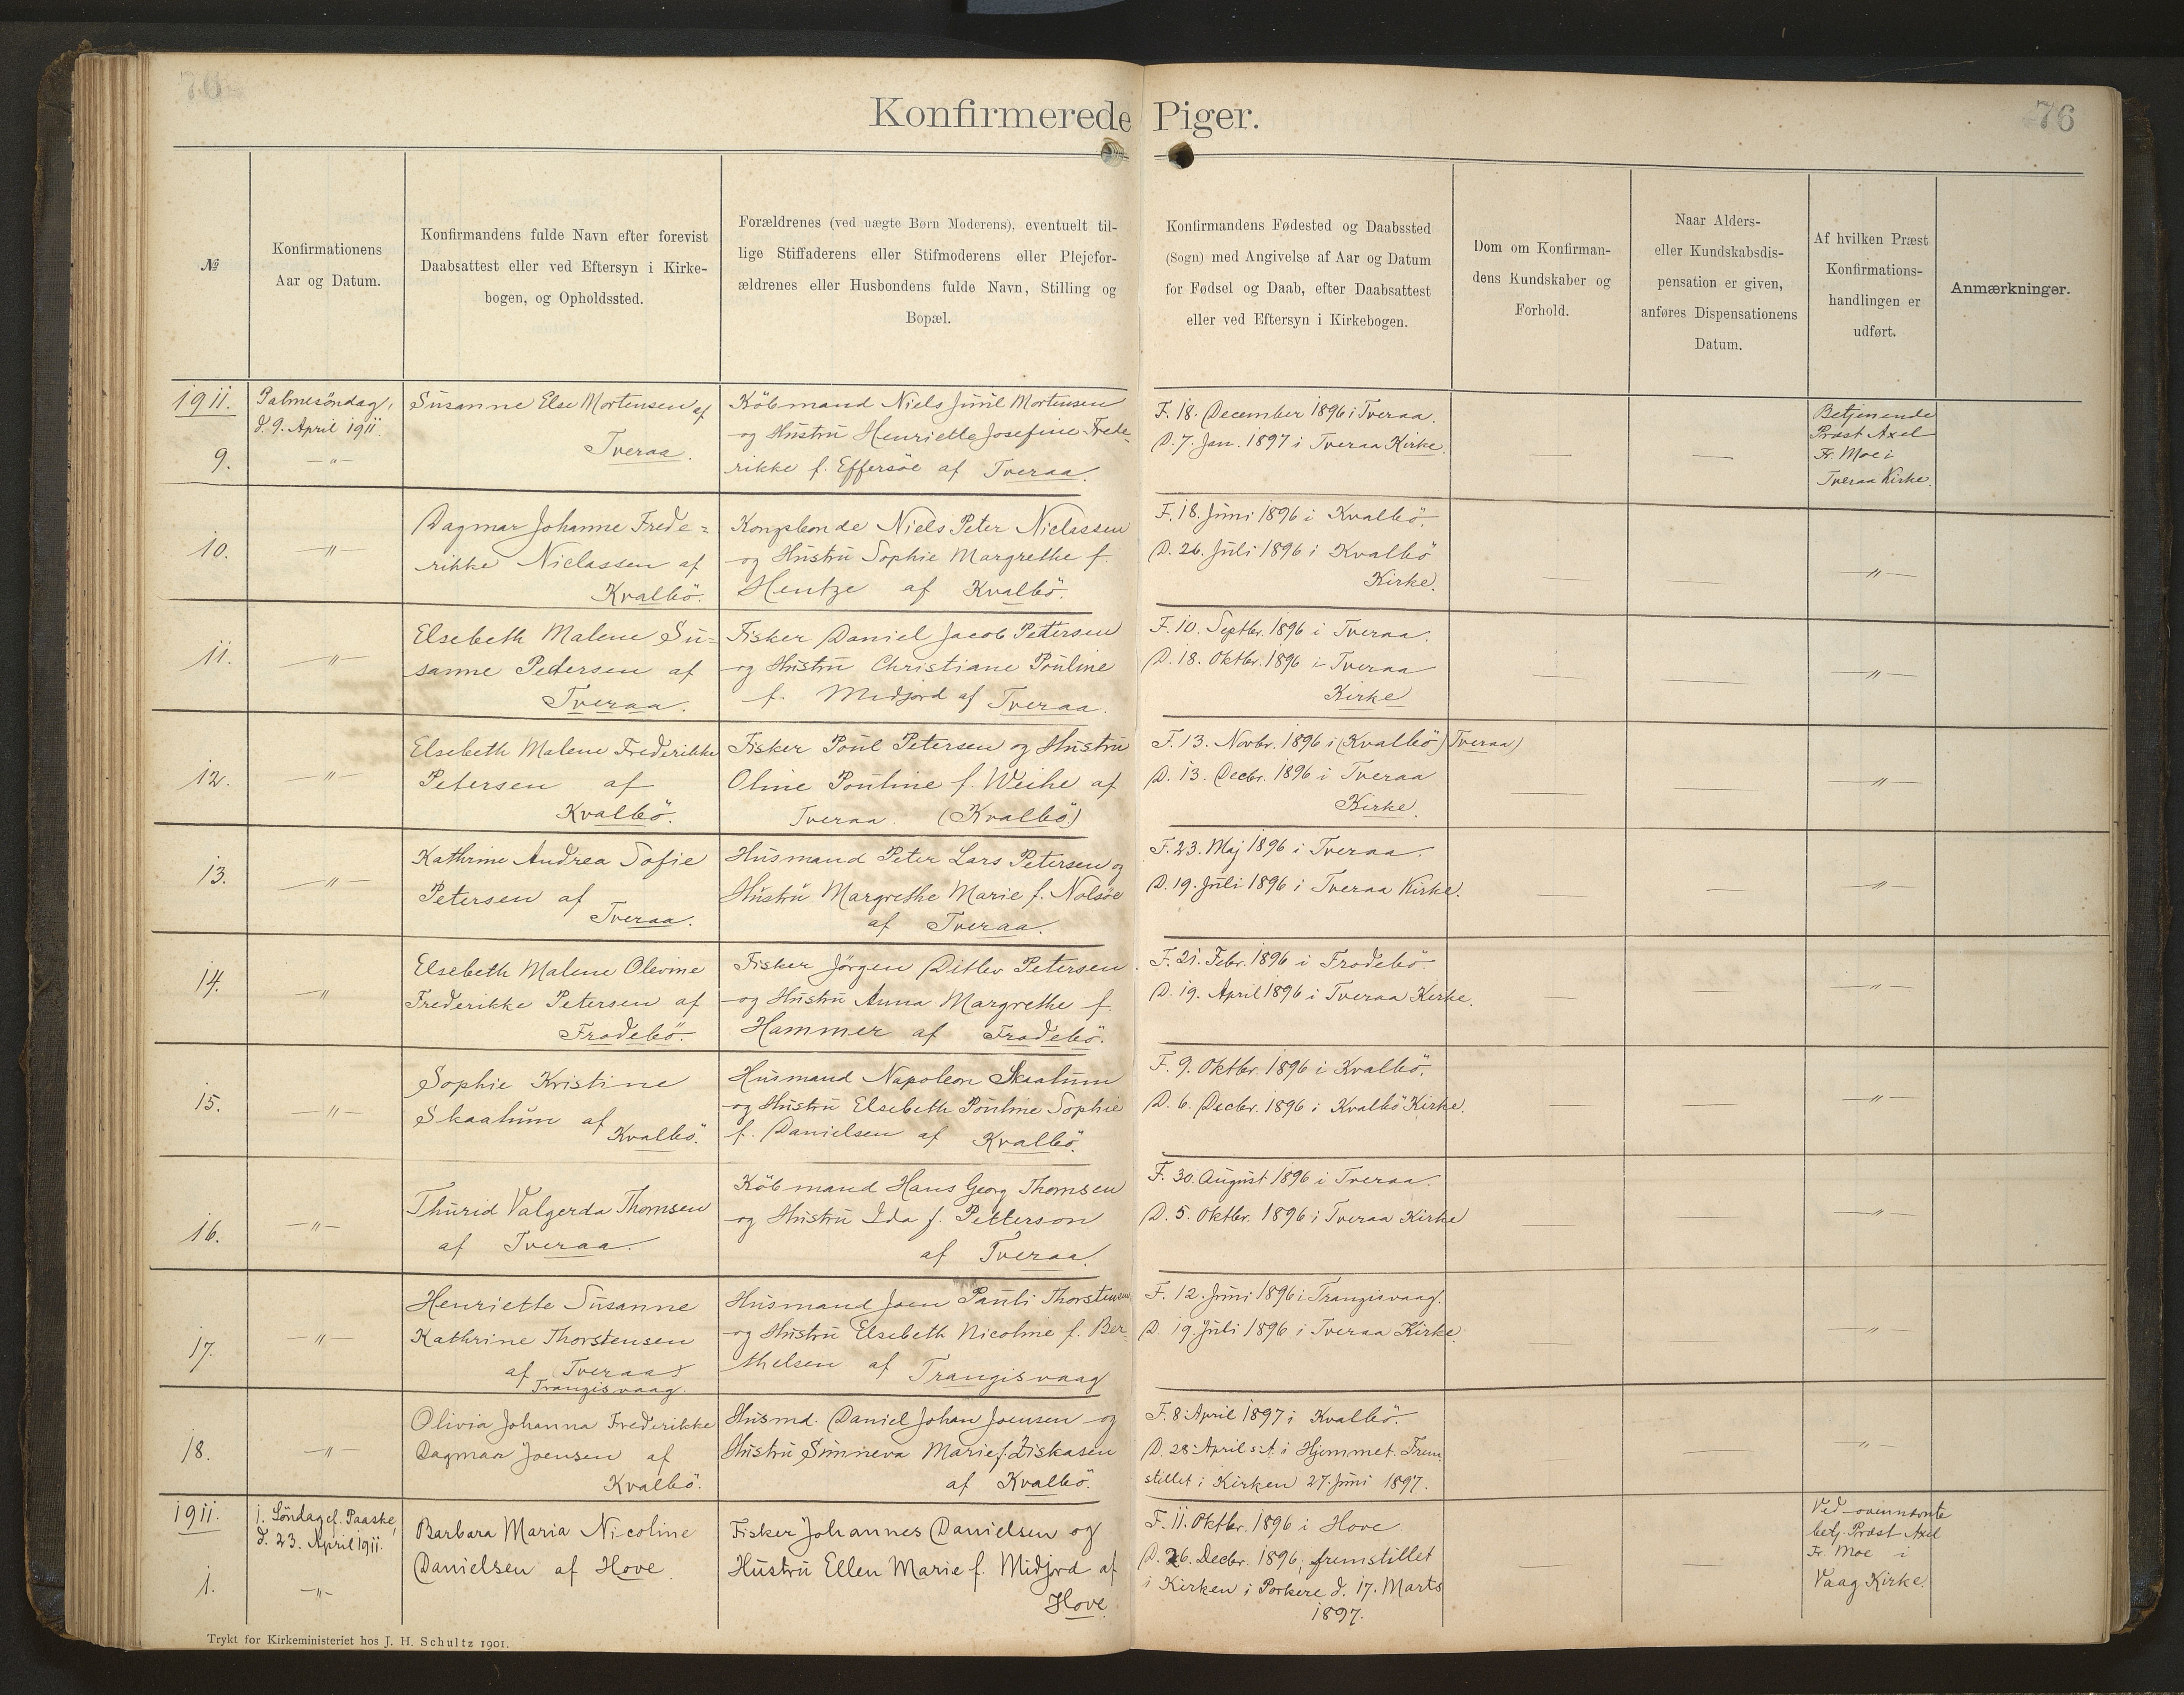 76
76
Konfirmerede Piger.
№
Konfirmationens
Aar og Datum.
Konfirmandens fulde Navn efter forevist
Daabsattest eller ved Eftersyn i Kirke-
bogen, og Opholdssted.
Forældrenes (ved uægte Børn Moderens), eventuelt til-
lige Stiffaderens eller Stifmoderens eller Plejefor-
ældrenes eller Husbondens fulde Navn, Stilling og
Bopæl.
Konfirmandens Fødested og Daabssted
(Sogn) med Angivelse af Aar og Datum
for Fødsel og Daab, efter Daabsattest
eller ved Eftersyn i Kirkebogen.
Dom om Konfirman-
dens Kundskaber og
Forhold.
Naar Alders-
eller Kundskabsdis-
pensation er given,
anføres Dispensationens
Datum.
Af hvilken Præst
Konfirmations-
handlingen er
udført.
Anmærkninger.
1911.
9.
Palmesöndag,
d. 9. April 1911.
—„—
Susanne Else Mortensen af
Tveraa.
Köbmand Niels Juul Mortensen
og Hustru Henriette Josefine Frede-
rikke f. Effersöe af Tveraa.
F. 18. December 1896 i Tveraa.
D. 7. Jan. 1897 i Tveraa Kirke.
— —
Betjenende
Præst Axel
Fr. Moe i
Tveraa Kirke.
10.
—„—
Dagmar Johanne Frede=
rikke Niclassen af
Kvalbö.
Kongsbonde Niels Peter Niclassen
og Hustru Sophie Margrethe f.
Hentze af Kvalbö.
F. 18. Juni 1896 i Kvalbö.
D. 26. Juli 1896 i Kvalbö
Kirke.
— — —„—
11.
—„—
Elsebeth Malene Su=
sanne Petersen af
Tveraa.
Fisker Daniel Jacob Petersen
og Hustru Christiane Pouline
f. Midjord af Tveraa.
F. 10. Septbr. 1896 i Tveraa.
D. 18. Oktbr. 1896 i Tveraa
Kirke
— — —„—
12.
—„—
Elsebeth Malene Frederikke
Petersen af
Kvalbö.
Fisker Poul Petersen og Hustru
Oline Pouline f. Weihe af
Tveraa. (Kvalbö)
F. 13. Novbr. 1896 i (Kvalbö) Tveraa)
D. 13. Decbr. 1896 i Tveraa
Kirke.
— — —„—
13.
—„—
Kathrine Andrea Sofie
Petersen af
Tveraa.
Husmand Peter Lars Petersen og
Hustru Margrethe Marie f. Nolsöe
af Tveraa.
F. 23. Maj 1896 i Tveraa.
D. 19. Juli 1896 i Tveraa Kirke.
— — —„—
14.
—„
Elsebeth Malene Olevine
Frederikke Petersen af
Frodebö.
Fisker Jörgen Ditlev Petersen
og Hustru Anna Margrethe f.
Hammer af Frodebö.
F. 21. Febr. 1896 i Frodebö.
D. 19. April 1896 i Tveraa Kirke.
— — —„—
15.
—„—
Sophie Kristine
Skaalum af
Kvalbö.
Husmand Napoleon Skaalum
og Hustru Elsebeth Pouline Sophie
f. Danielsen af Kvalbö.
F. 9. Oktbr. 1896 i Kvalbö.
D. 6. Decbr. 1896 i Kvalbö Kirke.
— — —„—
16.
—„—
Thurid Valgerda Thomsen
af Tveraa.
Köbmand Hans Georg Thomsen
og Hustru Ida f. Petterson
af Tveraa.
F. 30. August 1896 i Tveraa.
D. 5. Oktbr. 1896 i Tveraa Kirke
— — —„—
17.
—„—
Henriette Susanne
Kathrine Thorstensen
af (Tveraa)
Trangisvaag.
Husmand Joen Pauli Thorstensen
og Hustru Elsebeth Nicoline f. Ber-
thelsen af Trangisvaag
F. 12. Juni 1896 i Trangisvaag.
D. 19. Juli 1896 i Tveraa Kirke.
— — —„—
18.
—„—
Olivia Johanna Frederikke
Dagmar Joensen af
Kvalbö.
Husmd. Daniel Johan Joensen og
Hustru Sunneva Marie f. Ziskasen
af Kvalbö.
F. 8. April 1897 i Kvalbö.
D. 28. April s.A. i Hjemmet. Frem-
stillet i Kirken 27. Juni 1897.
—„—
1911.
1.
1. Söndag ef. Paaske,
d. 23. April 1911.
—„—
Barbara Maria Nicoline
Danielsen af Hove.
Fisker Johannes Danielsen og
Hustru Ellen Marie f. Midjord af
Hove.
F. 11. Oktbr. 1896 i Hove.
D. 26. Decbr. 1896, fremstillet
i Kirken i Porkere d. 17. Marts
1897.
— —
Ved ovennævnte
betj. Præst Axel
Fr. Moe i
Vaag Kirke.
Trykt for Kirkeministeriet hos J. H. Schultz 1901.